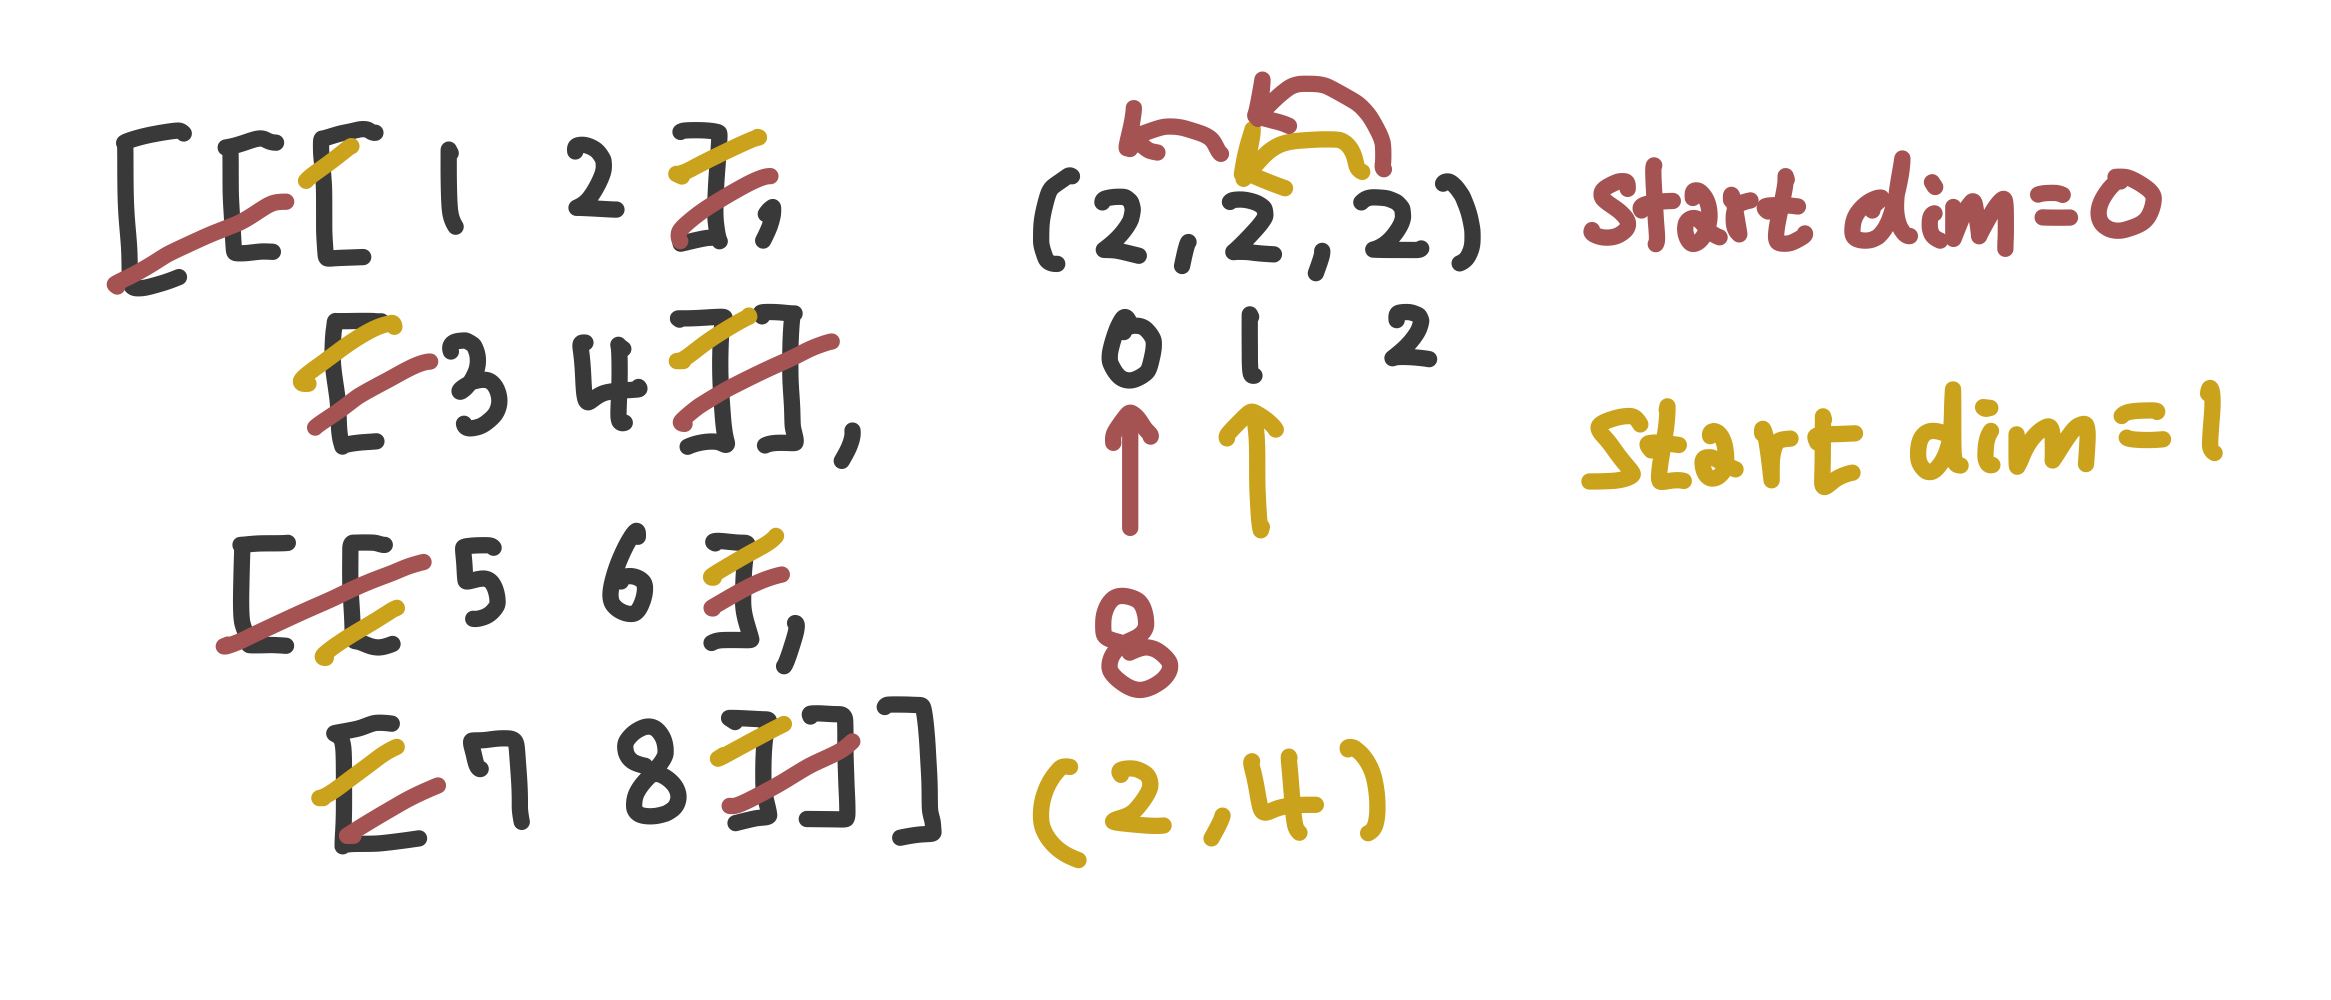 [[[1 2],
[3 4]],
[[5 6],
[7 8]]]
(2,2,2)
0 1 2
8
(2,4)
Start dim=0
Start dim=1